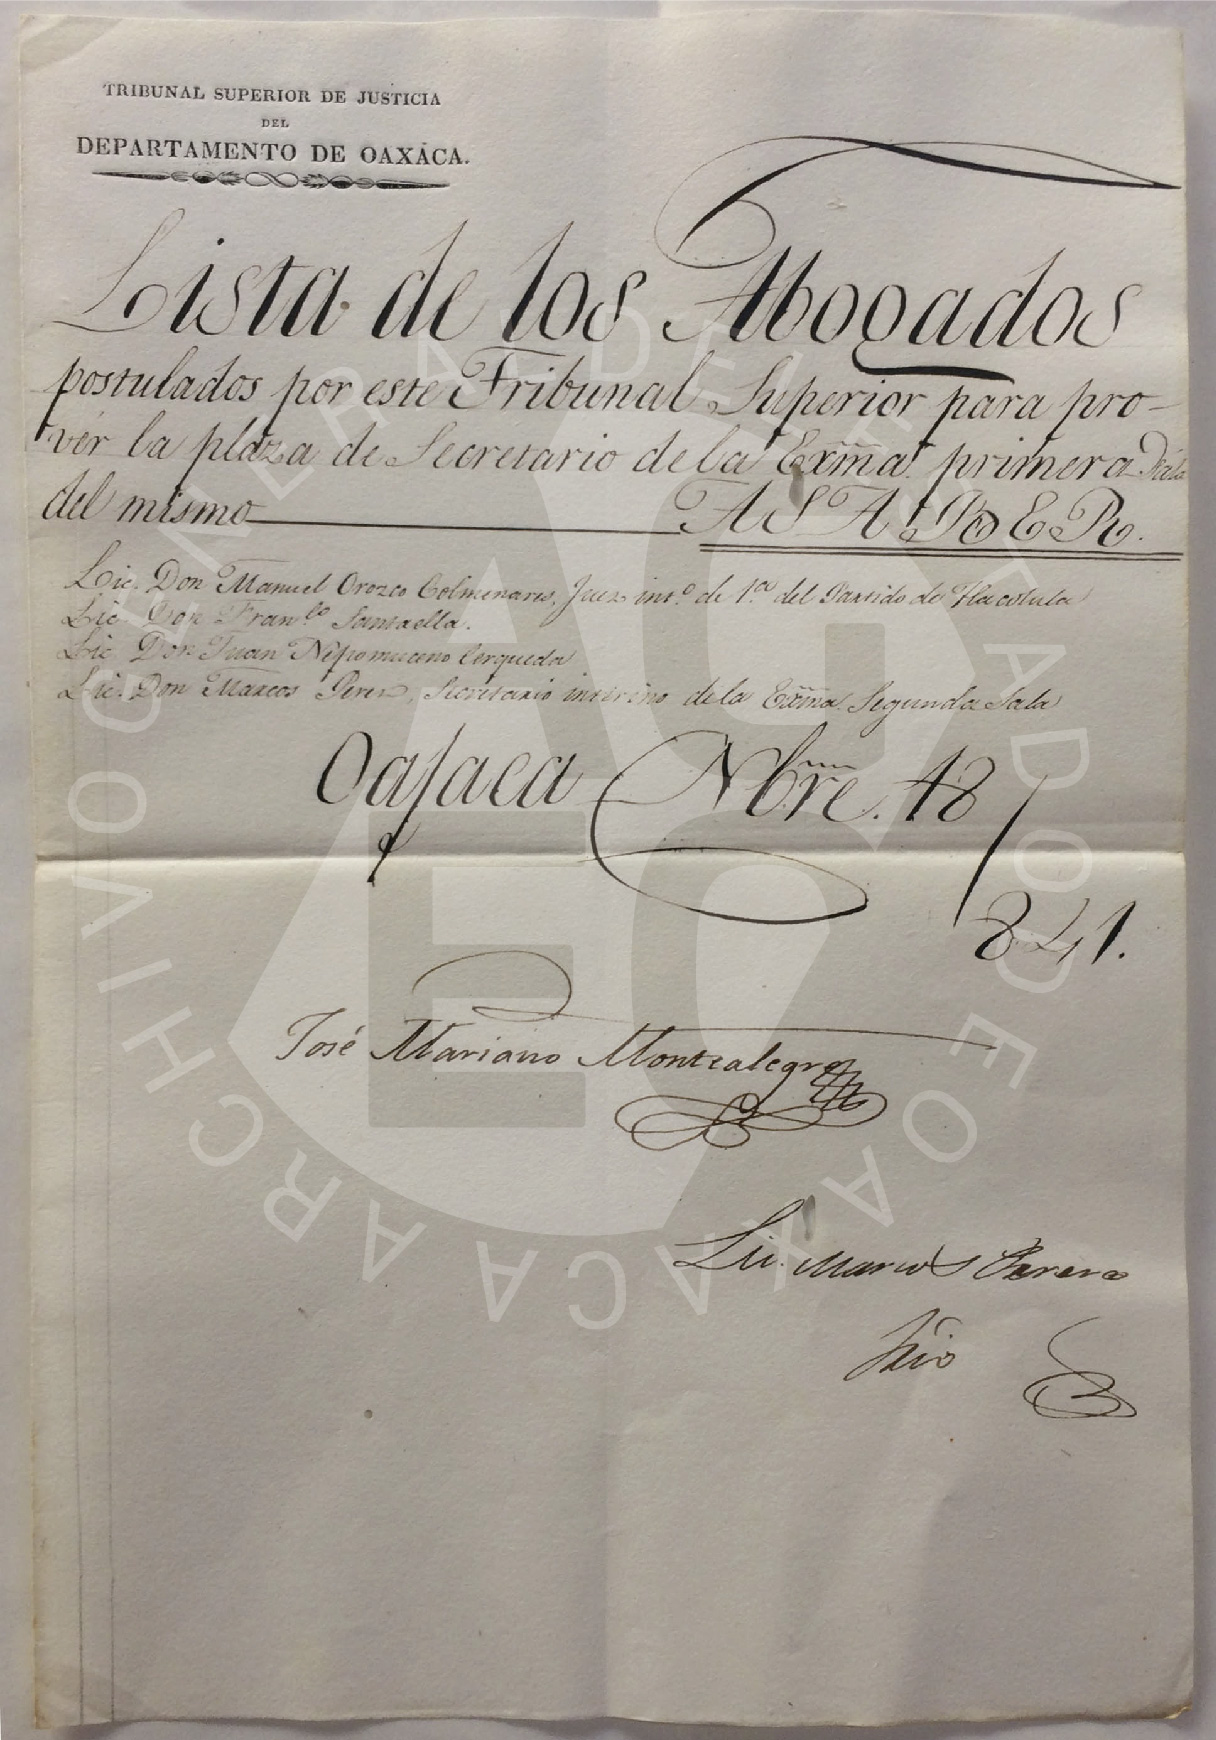 TRIBUNAL SUPERIOR DE JUSTICIA
DEL
DEPARTAMENTO DE OAXÁCA.
Lista de los Abogados
postulados por este Tribunal Superior para pro-
vér la plaza de Secretario de la Exm̃a. primera Sala
del mismo A SABER.
Lic. Don Manuel Orozco Colmenares, Juez int.o de 1.a del Partido de Tlacolula
Lic. Don Fran.co Santaella.
Lic. Don Juan Nepomuceno Cerqueda
Lic. Don Marcos Perez, Secretario interino de la Exm̃a. Segunda Sala
Oajaca Nbre. 18
841.
José Mariano Montealegre
Lic. Marcos Perez
Srio
ARCHIVO GENERAL DEL ESTADO DE OAXACA
AGEO